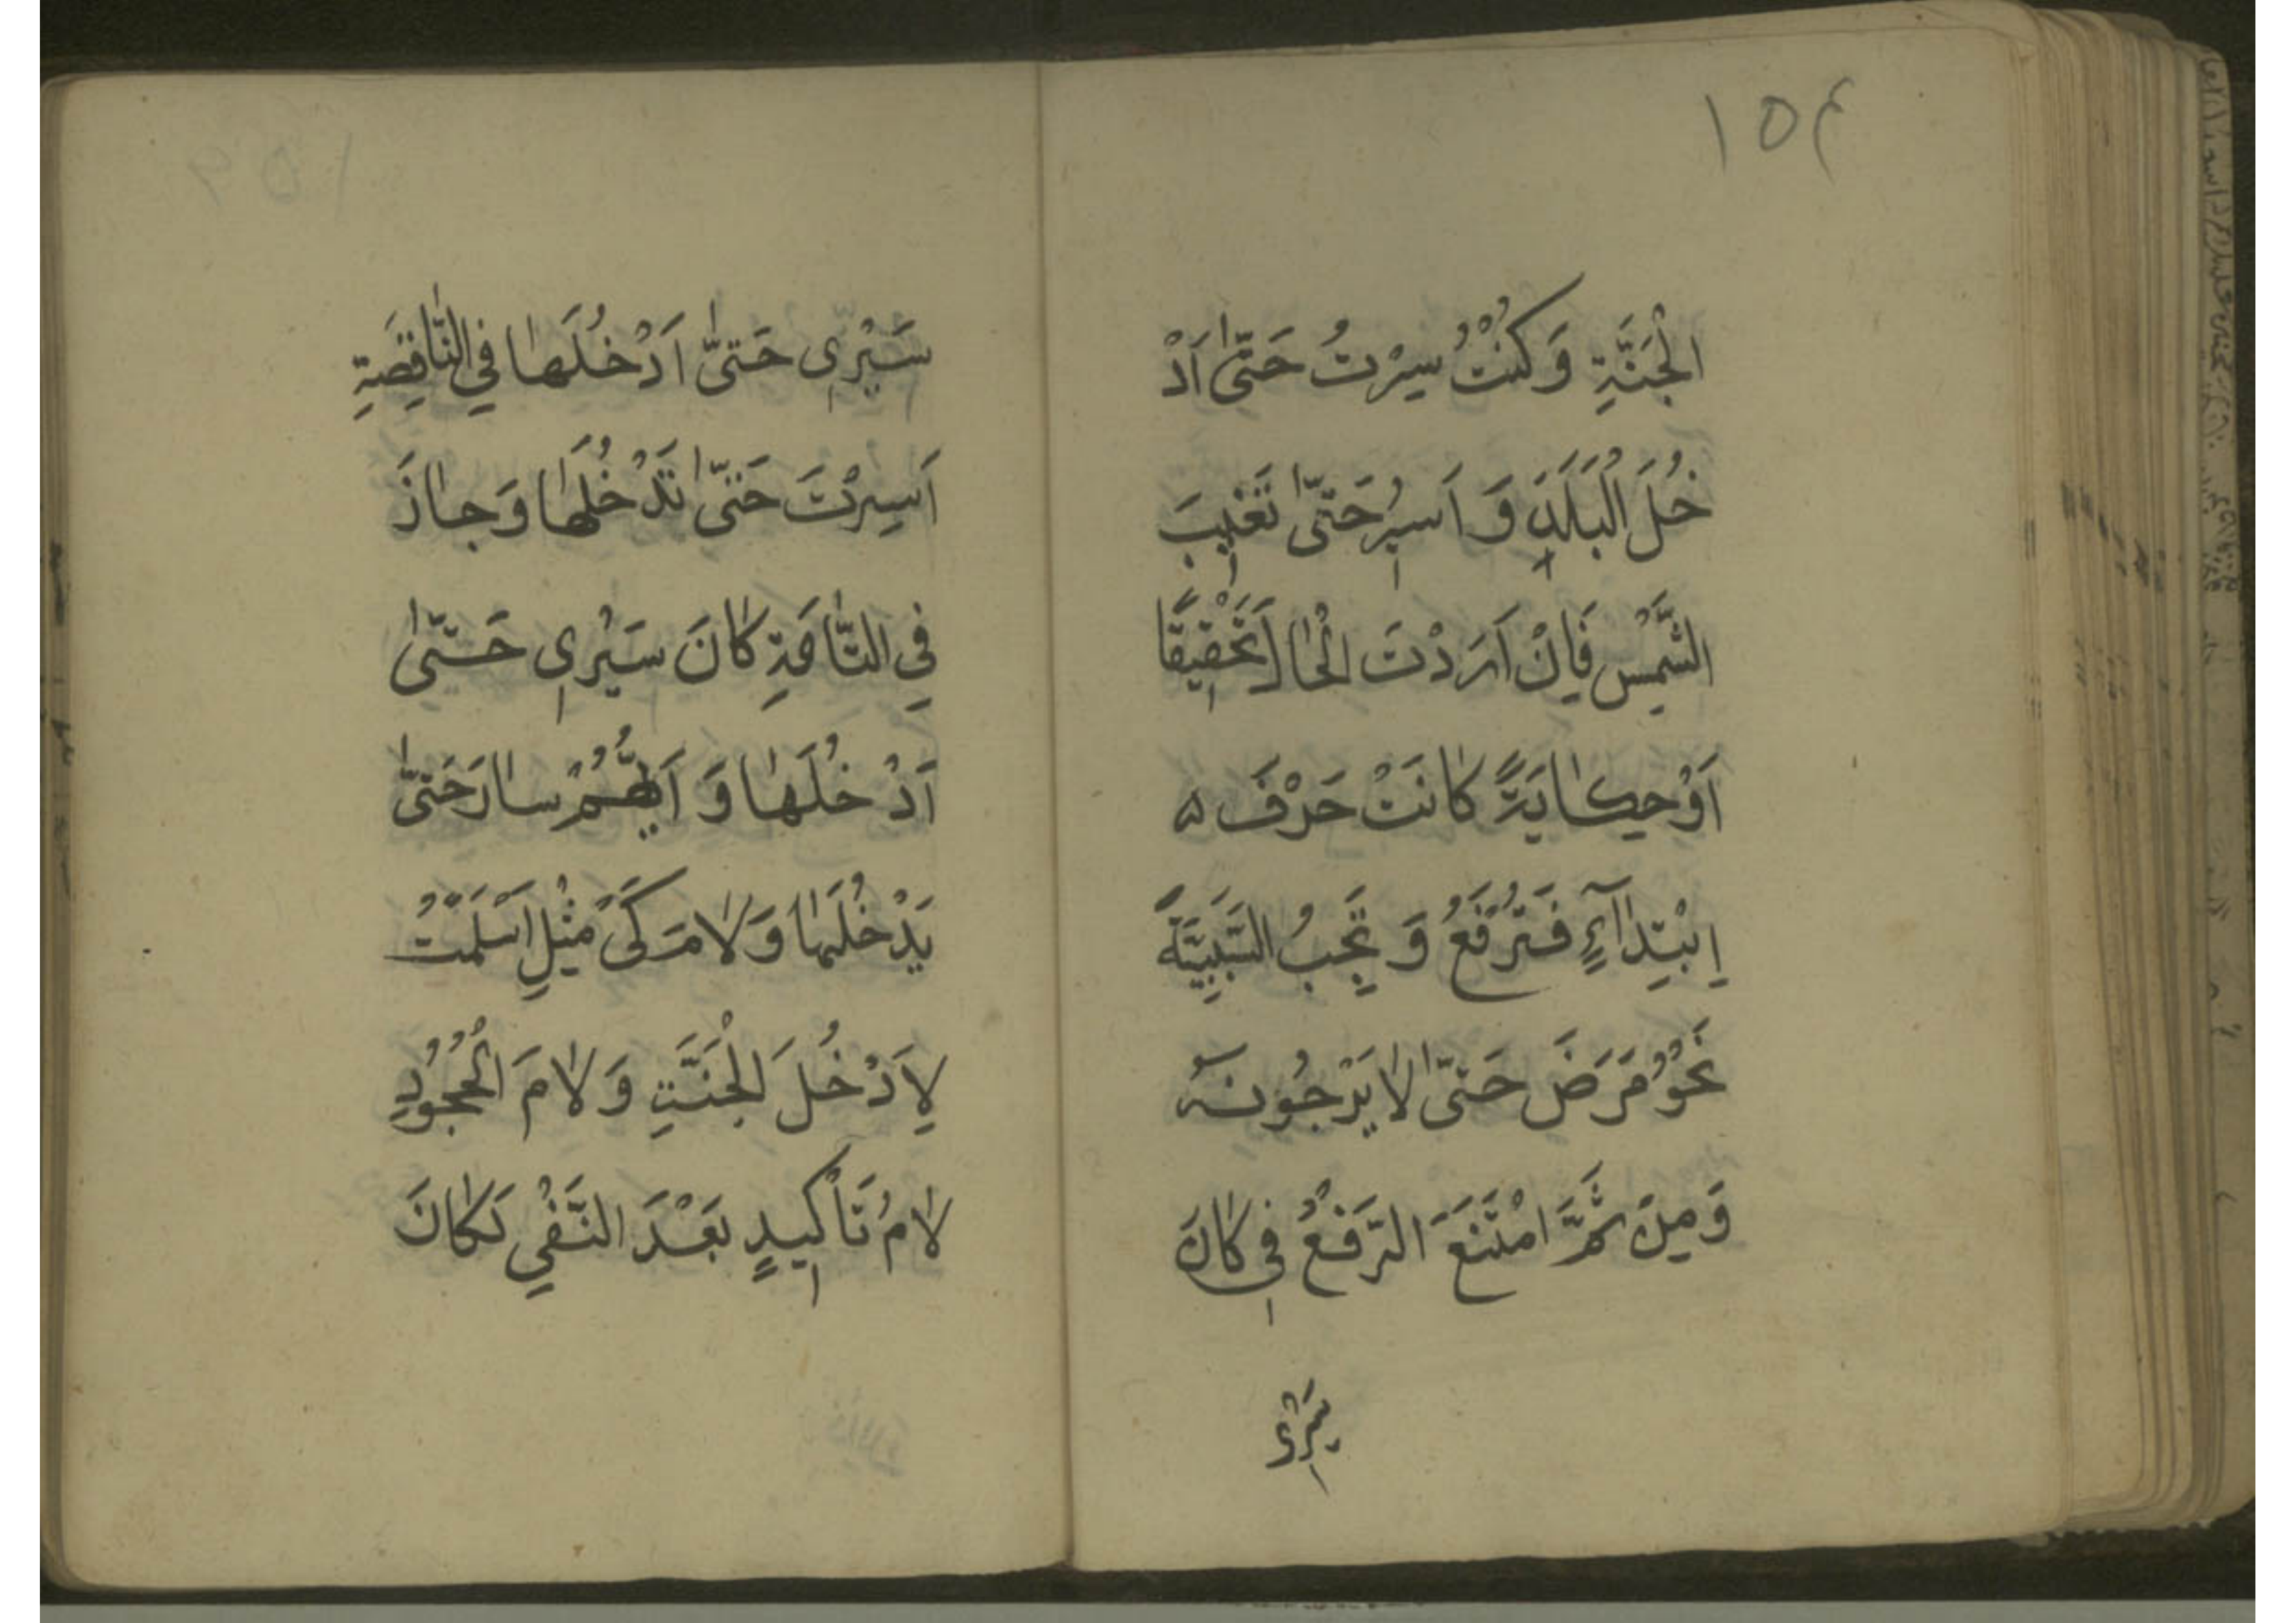 ١٥٤
الْجَنَّةِ وَكُنْتُ سِرْتُ حَتّىٰ اَدْ
خُلَ الْبَلَدَ وَ اَسيرُ حَتّىٰ تَغيبَ
الشَّمْسِ فَاِنْ اَرَدْتَ الْحٰالَ تَحْقيقًا
اَوْ حِكٰايَةً كٰانَتْ حَرْفَ ه
اِبْتِدٰآءٍ فَتُرْفَعُ وَ تَجِبُ السَّبَبِيَّةُ
نَحْوُ مَرَضَ حَتّىٰ لٰا يَرْجُونَهُ
وَمِنْ ثَمَّ امْتَنَعَ الرَّفْعُ في كٰانَ
سَيْرى
سَيْرِى حَتىّٰ اَدْخُلَهٰا فِي النّٰاقِصَةِ
اَسِرْتَ حَتىّٰ تَدْخُلَهٰا وَجٰازَ
فِي التّٰامَّةِ كٰانَ سَيْرِى حَتىّٰ
اَدْخُلَهٰا وَ اَيُّهُمْ سٰارَ حَتىّٰ
يَدْخُلَهٰا وَ لٰامَ كَىْ مِثْلِ اَسْلَمْتُ
لِاَدْخُلَ الْجَنَّةِ وَ لٰامَ الْجُحُودِ
لٰامُ تَأْكيدٍ بَعْدَ النَّفْيِ لَكٰانَ